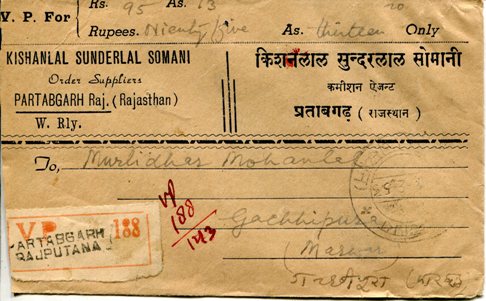 V. P. For Rs. 95 As. 13
Rupees. Nienty five As. thirteen Only
KISHANLAL SUNDERLAL SOMANI
Order Suppliers
PARTABGARH Raj. (Rajasthan)
W. Rly.
किशनलाल सुन्दरलाल सोमानी
कमीशन ऐजन्ट
प्रताबगढ़ ( राजस्थान )
To, Murlidhar Mohanlal
VP
188
143
Gachhipura
(Marwar)
VP 188
PARTABGARH
RAJPUTANA